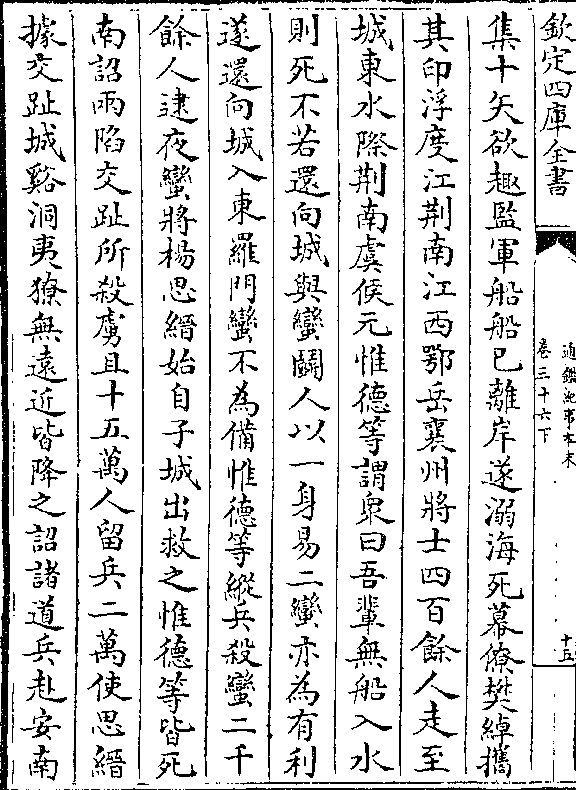 欽定四庫全書
通鑑紀事本末
卷三十六下
十五
集十矢欲趣監軍船船已離岸遂溺海死幕僚樊綽攜
其印浮度江荆南江西鄂岳襄州將士四百餘人走至
城東水際荆南虞候元惟德等謂衆曰吾輩無船入水
則死不若還向城與蠻鬭人以一身易二蠻亦為有利
遂還向城入東羅門蠻不為備惟德等縱兵殺蠻二千
餘人逮夜蠻將楊思縉始自子城出救之惟德等皆死
南詔兩陷交趾所殺虜且十五萬人留兵二萬使思縉
據交趾城谿洞夷獠無遠近皆降之詔諸道兵赴安南